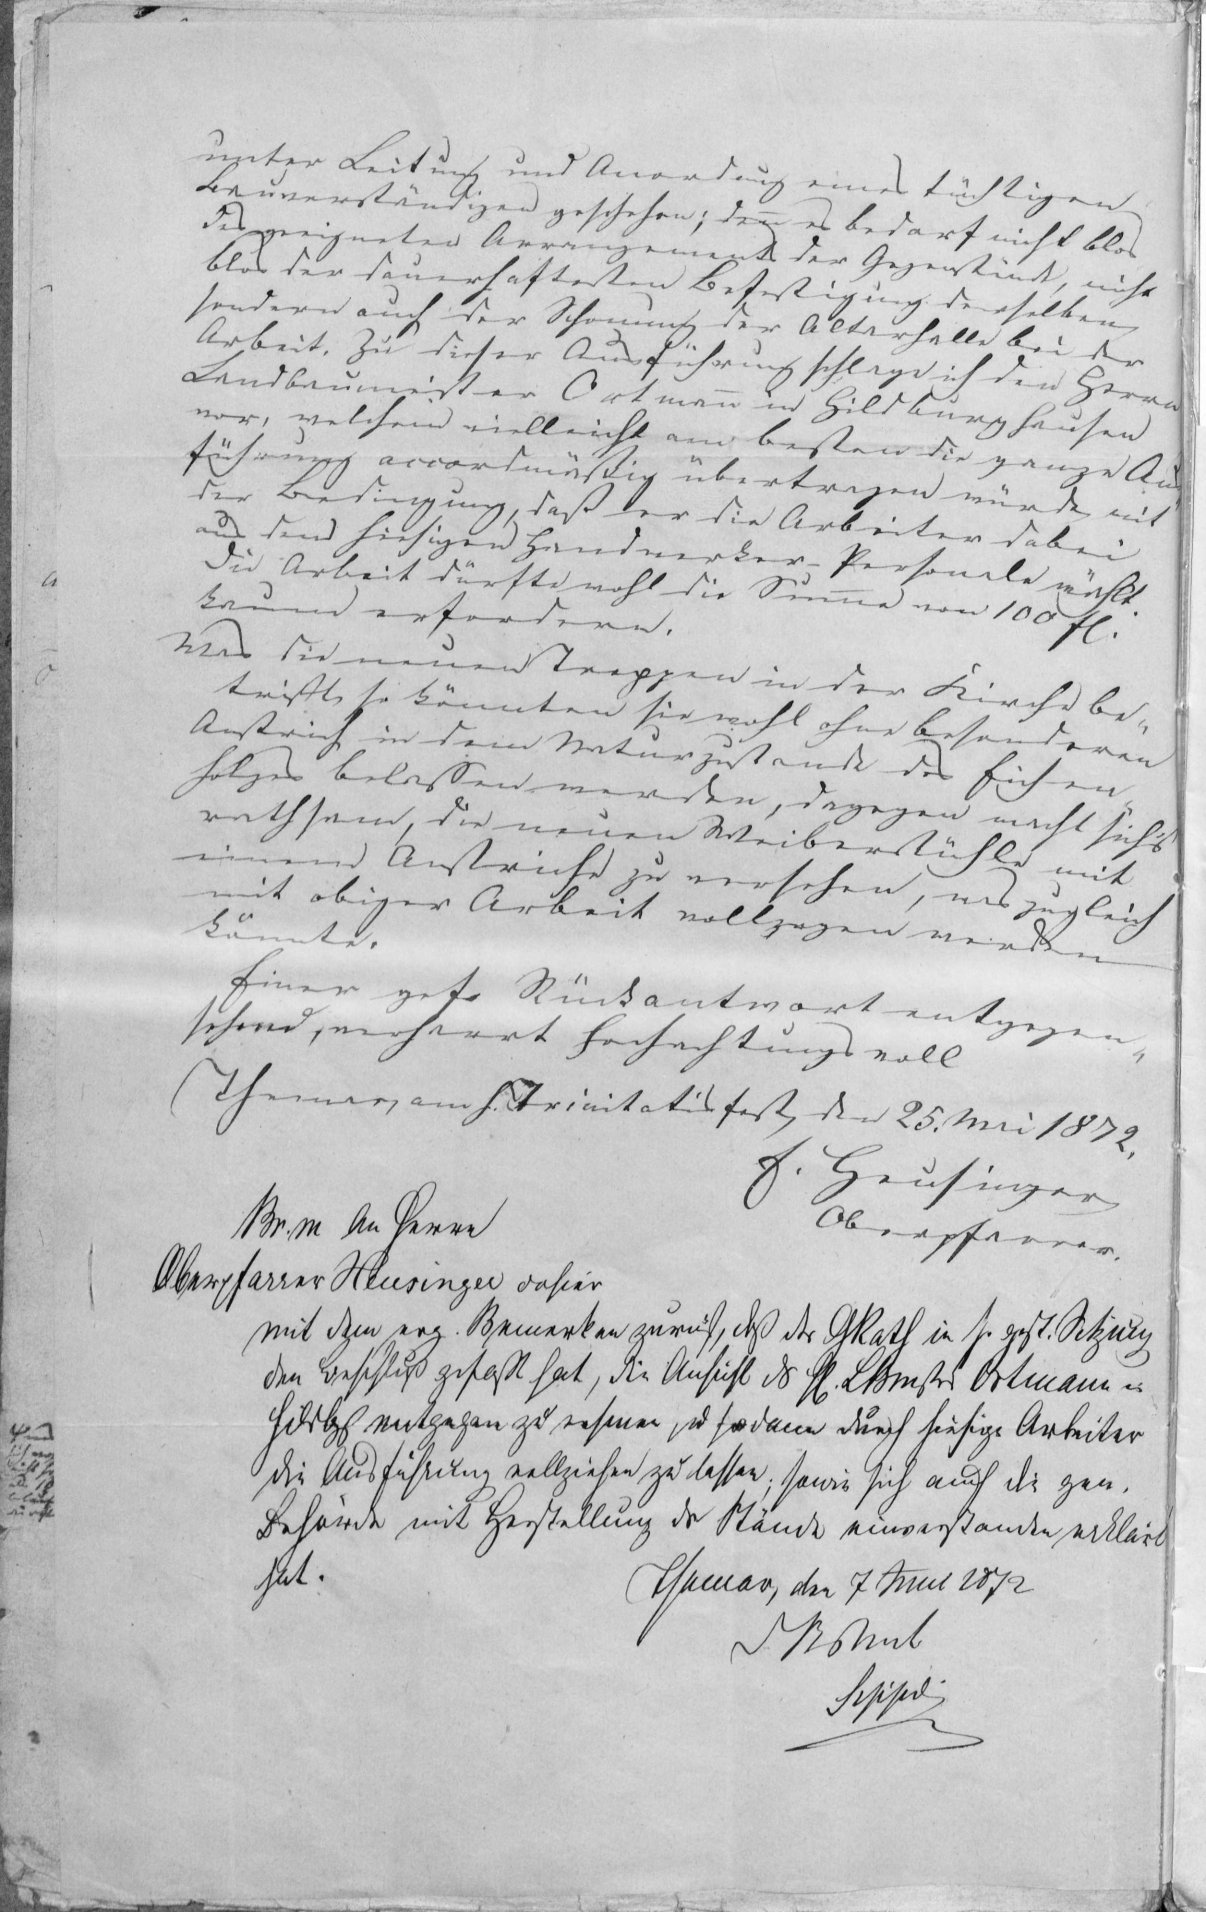 unter Leitung und Anordnung eines tüchtigen
Bauverständigen geschehen; denn es bedarf nicht blos
des geeigneten Arrangements der Gegenstände, nicht
blos der dauerhaftesten Befestigung derselben,
sondern auch der Schonung der Altarhalle bei der
Arbeit. Zu dieser Ausführung schlage ich den Herrn
Landbaumeister Ortmann in Hildburghausen
vor, welchem vielleicht am besten die ganze Aus-
führung accordmäßig übertragen würde mit
der Bedingung, daß er die Arbeiter dabei
aus dem hiesigen Handwerker-Personale wählt.
Die Arbeit dürfte wohl die Summe von 100 fl.
kaum erfordern.
Was die neuen Treppen in der Kirche be-
trifft, so könnten sie wohl ohne besonderen
Anstrich in dem Naturzustande des Eichen-
holzes belassen werden, dagegen macht sich's
rathsam, die neuen Weiberstühle mit
einem Anstriche zu versehen, was zugleich
mit obiger Arbeit vollzogen werden
könnte.
Einer gef. Rückantwort entgegen-
sehend, verharrt hochachtungsvoll
Themar, am h. Trinitatisfest, den 25. Mai 1872.
F. Heusinger
Oberpfarrer.
Br. m An Herrn
Oberpfarrer Heusinger dahier
mit dem erg. Bemerken zurück, daß der GRath in s. gest. Sitzung
den Beschluß gefaßt hat, die Ansicht des H. LBmstrs Ortmann in
Hildbghs entgegen zu nehmen, u sodann durch hiesige Arbeiter
die Ausführung vollziehen zu lassen; sowie sich auch die gen.
Behörde mit Herstellung der Stände einverstanden erklärt
hat.
Themar, den 7 Juni 1872